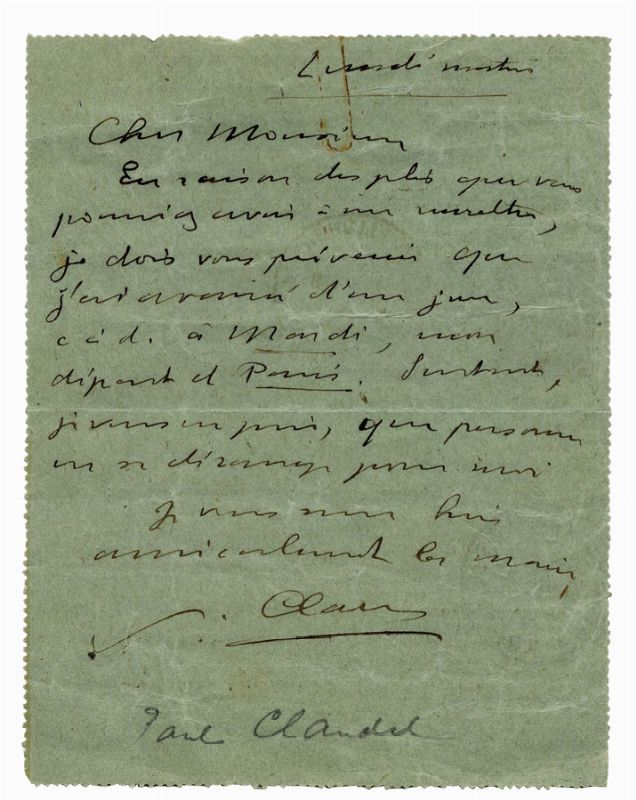 Lundi matin
Cher Monsieur
En raison des plis que vous
pourriez avoir à me remettre,
je dois vous prévenir que
j'ai avancé d'un jour,
c à d. à Mardi, mon
départ d Paris. Surtout,
je vous en prie, que personne
ne se dérange pour moi
Je vous serre bien
amicalement les mains
Paul Claudel